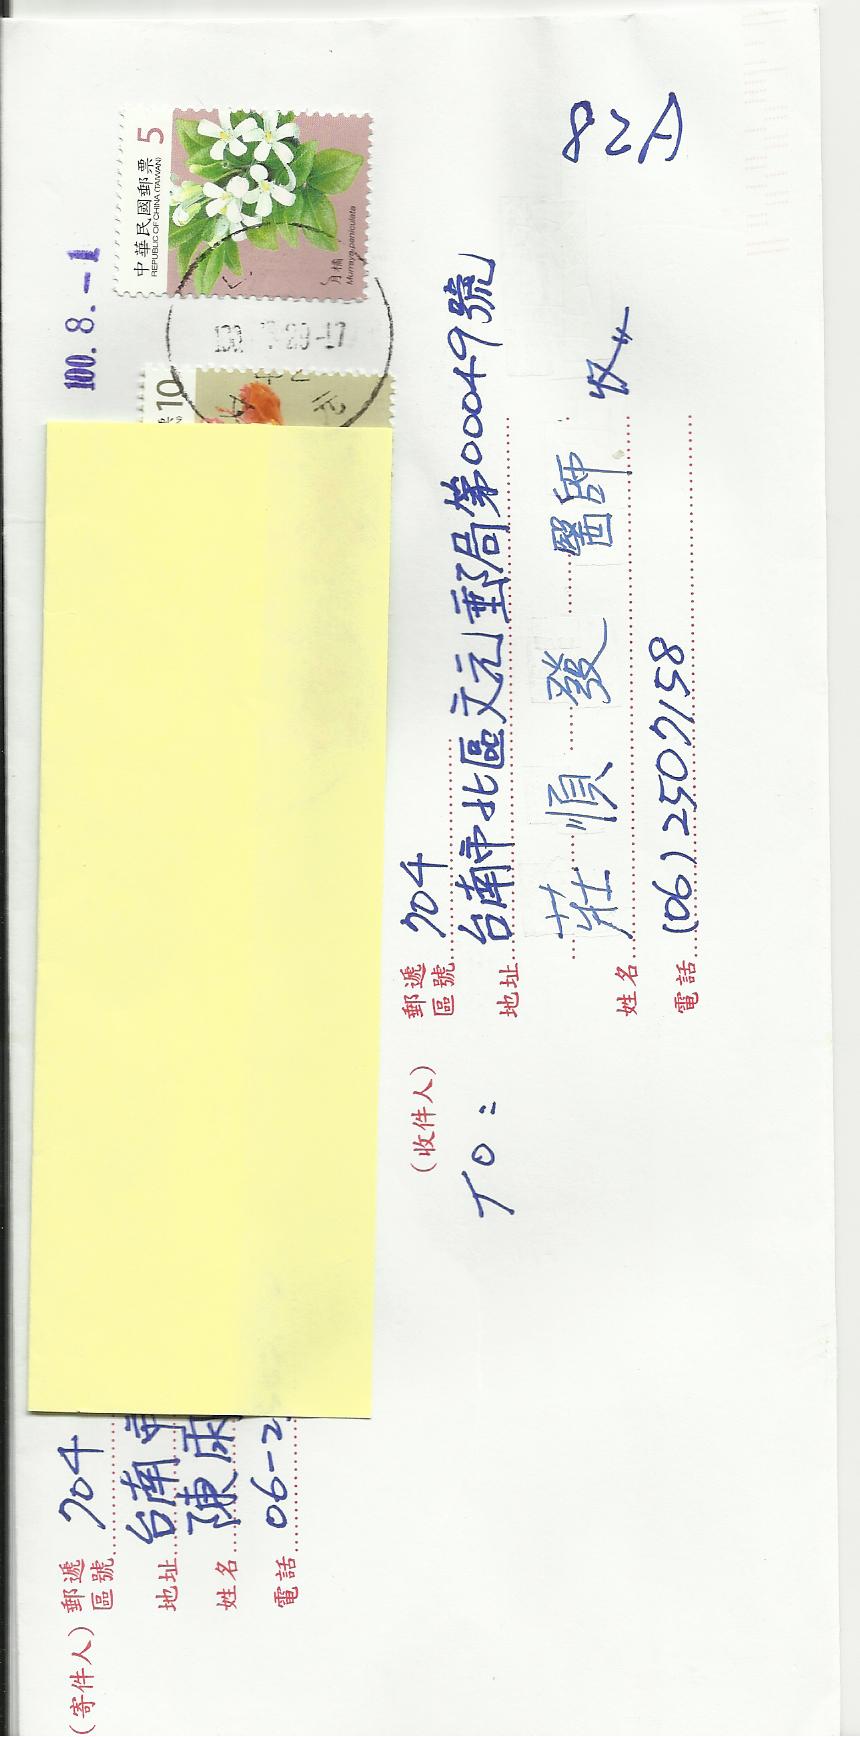 (寄件人)
郵遞區號 704
地址 台南市
姓名 陳
電話 06-2
100.8.-1
中華民國郵票 5
REPUBLIC OF CHINA (TAIWAN)
月橘
Murraya paniculata
10
(收件人)
TO:
郵遞區號 704
地址 台南市北區文元郵局第00049號
姓名 莊順發 醫師 收
電話 (06)2507158
82A